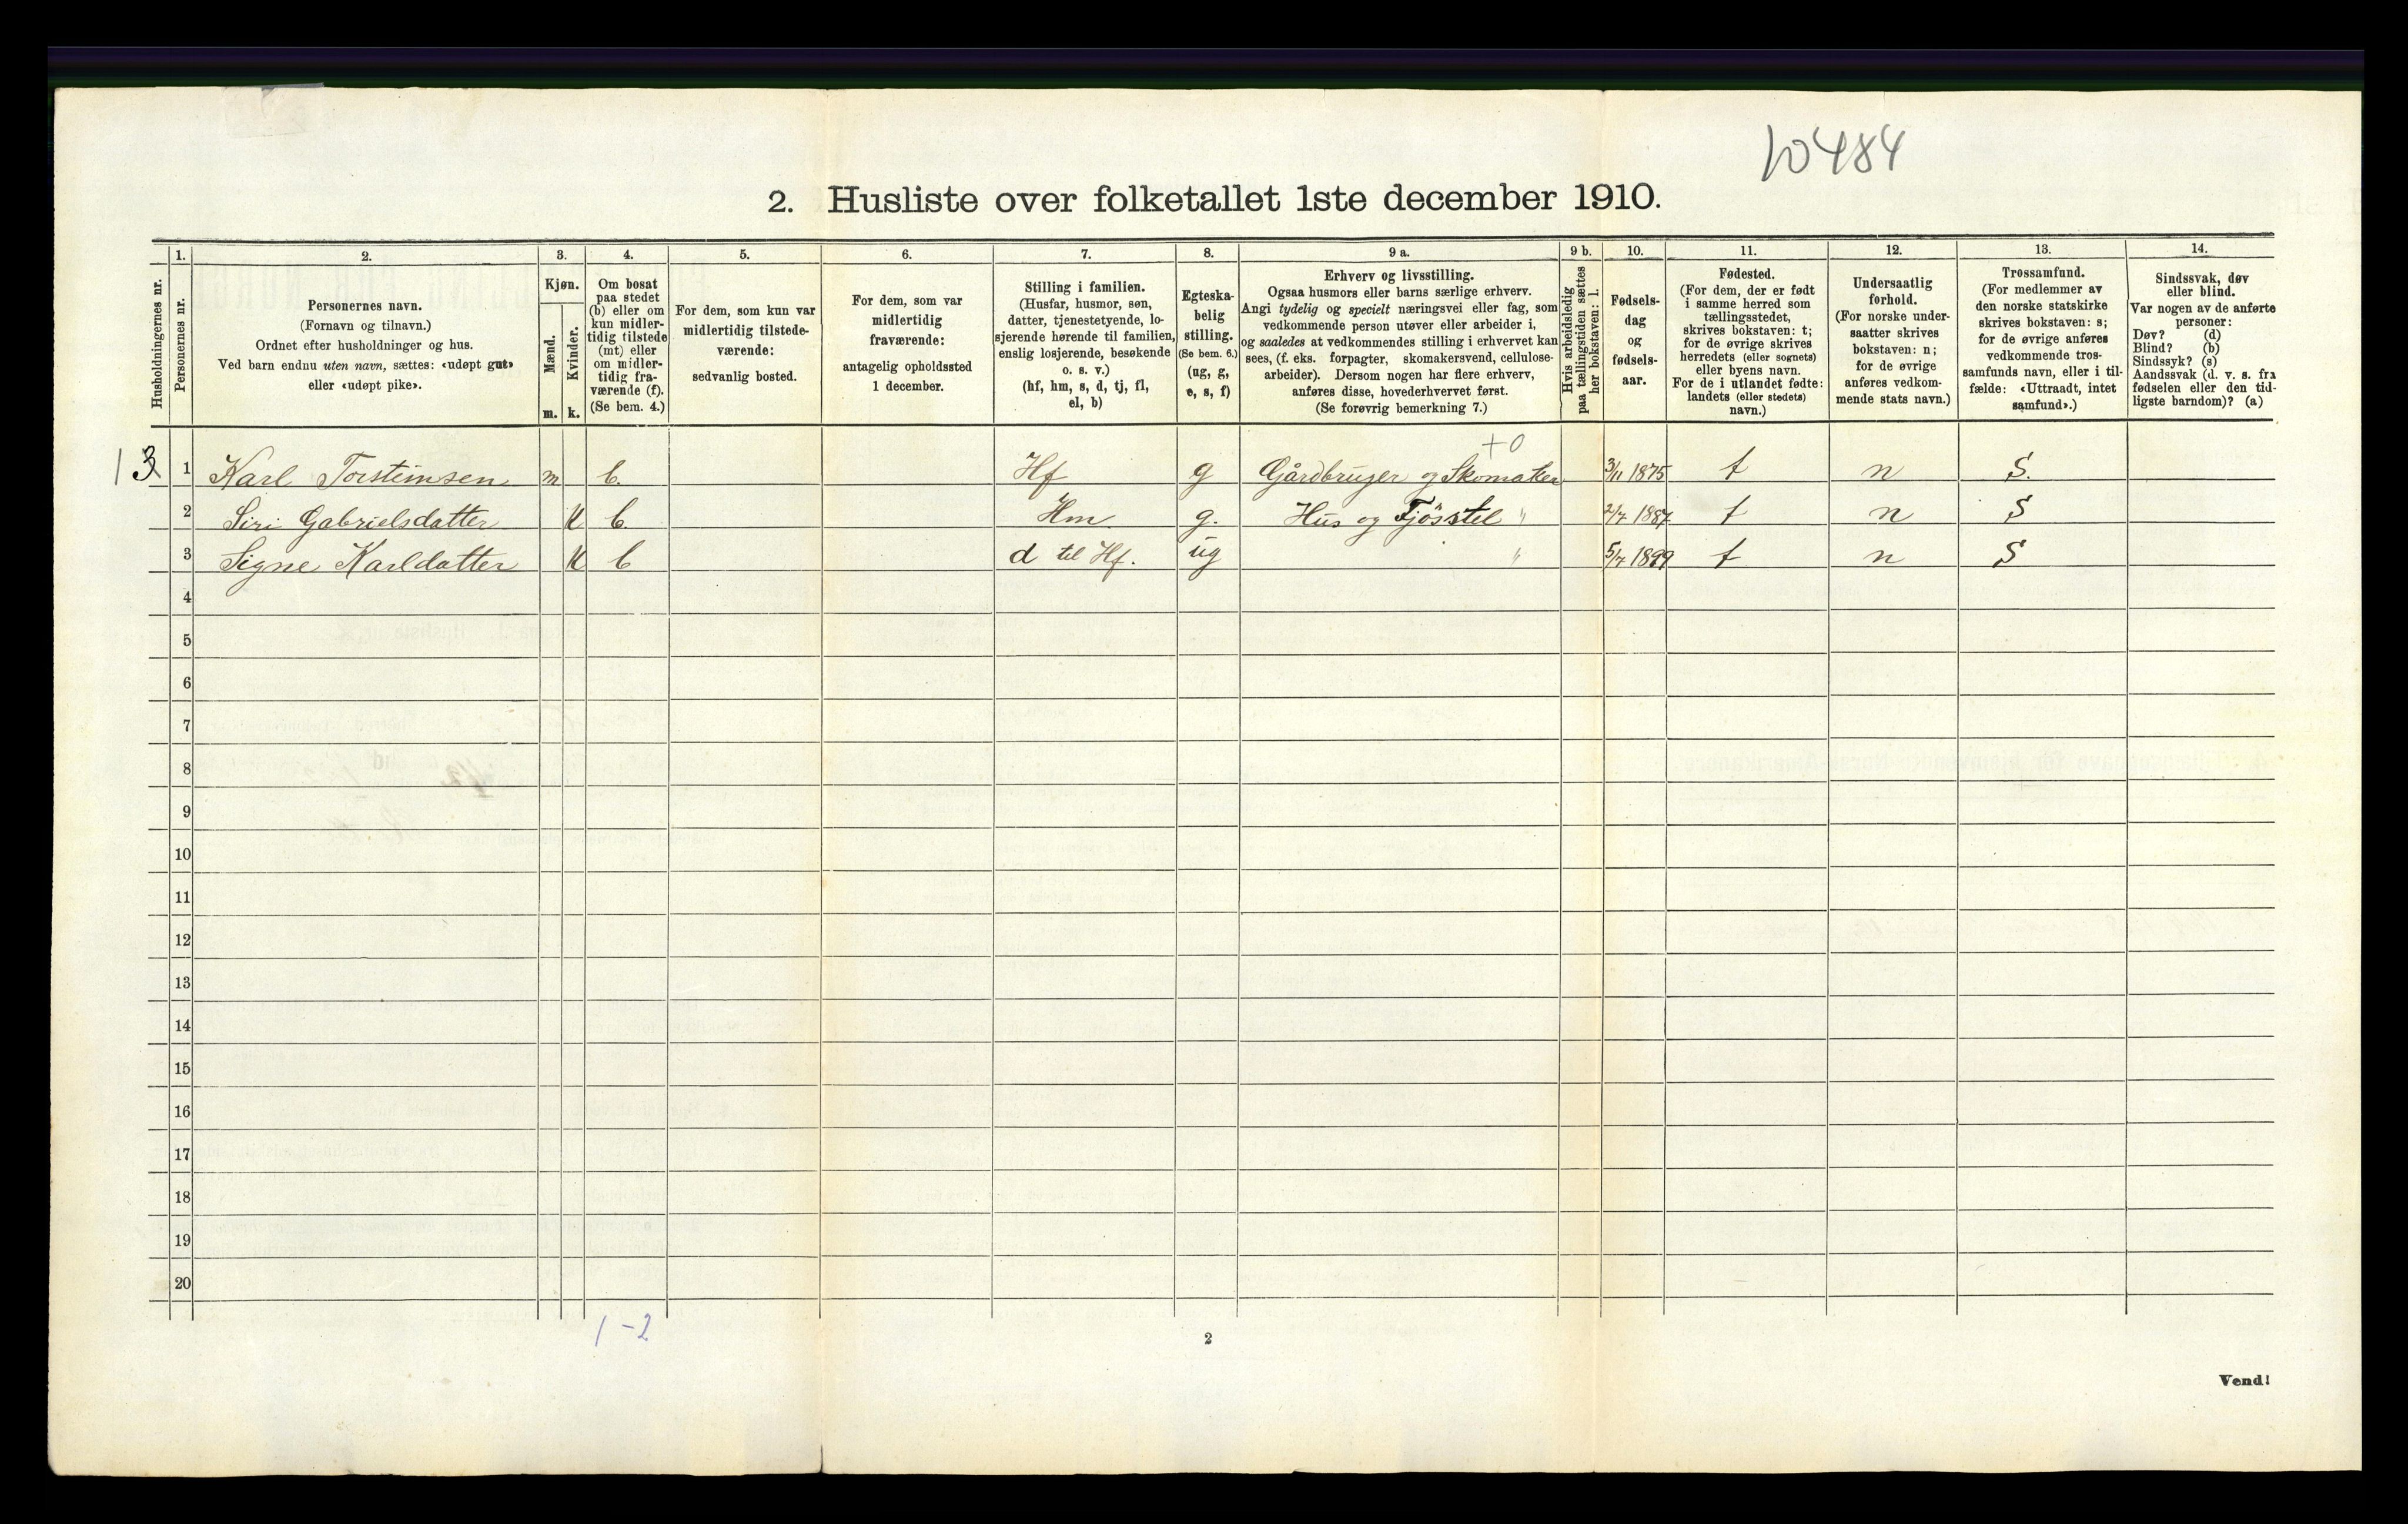 10484
2. Husliste over folketallet 1ste december 1910.
Husholdningernes nr.
1. Personernes nr.
2.
Personernes navn.
(Fornavn og tilnavn.)
Ordnet efter husholdninger og hus.
Ved barn endnu uten navn, sættes: «udøpt gut»
eller «udøpt pike».
3.
Kjøn.
Mænd. Kvinder.
m. k.
4.
Om bosat
paa stedet
(b) eller om
kun midler-
tidig tilstede
(mt) eller
om midler-
tidig fra-
værende (f).
(Se bem. 4.)
5.
For dem, som kun var
midlertidig tilstede-
værende:
sedvanlig bosted.
6.
For dem, som var
midlertidig
fraværende:
antagelig opholdssted
1 december.
7.
Stilling i familien.
(Husfar, husmor, søn,
datter, tjenestetyende, lo-
sjerende hørende til familien,
enslig losjerende, besøkende
o. s. v.)
(hf, hm, s, d, tj, fl,
el, b)
8.
Egteska-
belig
stilling.
(Se bem. 6.)
(ug, g,
e, s, f)
9 a.
Erhverv og livsstilling.
Ogsaa husmors eller barns særlige erhverv.
Angi tydelig og specielt næringsvei eller fag, som
vedkommende person utøver eller arbeider i,
og saaledes at vedkommendes stilling i erhvervet kan
sees, (f. eks. forpagter, skomakersvend, cellulose-
arbeider). Dersom nogen har flere erhverv,
anføres disse, hovederhvervet først.
(Se forøvrig bemerkning 7.)
9 b.
Hvis arbeidsledig
paa tællingstiden sættes
her bokstaven: l.
10.
Fødsels-
dag
og
fødsels-
aar.
11.
Fødested.
(For dem, der er født
i samme herred som
tællingsstedet,
skrives bokstaven: t;
for de øvrige skrives
herredets (eller sognets)
eller byens navn.
For de i utlandet fødte:
landets (eller stedets)
navn.)
12.
Undersaatlig
forhold.
(For norske under-
saatter skrives
bokstaven: n;
for de øvrige
anføres vedkom-
mende stats navn.)
13.
Trossamfund.
(For medlemmer av
den norske statskirke
skrives bokstaven: s;
for de øvrige anføres
vedkommende tros-
samfunds navn, eller i til-
fælde: «Uttraadt, intet
samfund».)
14.
Sindssvak, døv
eller blind.
Var nogen av de anførte
personer:
Døv? (d)
Blind? (b)
Sindssyk? (s)
Aandssvak (d. v. s. fra
fødselen eller den tid-
ligste barndom)? (a)
+0
13 1 Karl Torsteinsen m b. Hf g Gårdbruger og Skomaker 3/11 1875 t n S.
2 Siri Gabrielsdatter K b. Hm. g. Hus og Fjösstel " 2/7 1887 t n S
3 Signe Karldatter K b d til Hf. ug " 5/7 1899 t n S
4
5
6
7
8
9
10
11
12
13
14
15
16
17
18
19
20
1-2
2
Vend!